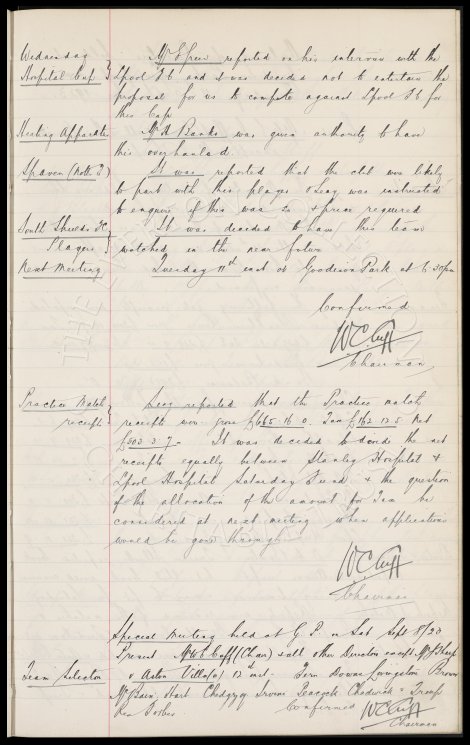 Wednesday
Hospital Cup
Mr E Green reported on his interview with the
Lpool Fc and it was decided not to entertain the
proposal for us to compete against Lpool Fc for
this Cup
Heating Apparatus
Mr A Banks was given authority to have
this overhauled.
Spaven (Notts F)
It was reported that the club was likely
to part with this player & Secy was instructed
to enquire if this was so & price required
South Shields FC
Players
It was decided to have this team
watched in the near future
Next Meeting
Tuesday 11th inst at Goodison Park at 6.30pm
Confirmed
WC Cuff
Chairman
Practice Match
receipts
Secy reported that the Practice match
receipts were gross £665 16 0. Tax £162 12 5 Net
£503 3 7 - It was decided to divide the net
receipts equally between Stanley Hospital &
Lpool Hospital Saturday Fund & the question
of the allocation of the amount for Tax be
considered at next meeting when applications
would be gone through
WC Cuff
Chairman
Special Meeting held at G.P. on Sat Sept 8/23
Present Mr W C Cuff (Chair) & all other Directors except Mr Sharp
Team Selection
v Aston Villa (a) 12th inst - Fern Downs Livingston Brown
McBain Hart Chedgzoy Irvine Leargold Chadwick Troup
Res Forbes
Confirmed
WC Cuff
Chairman